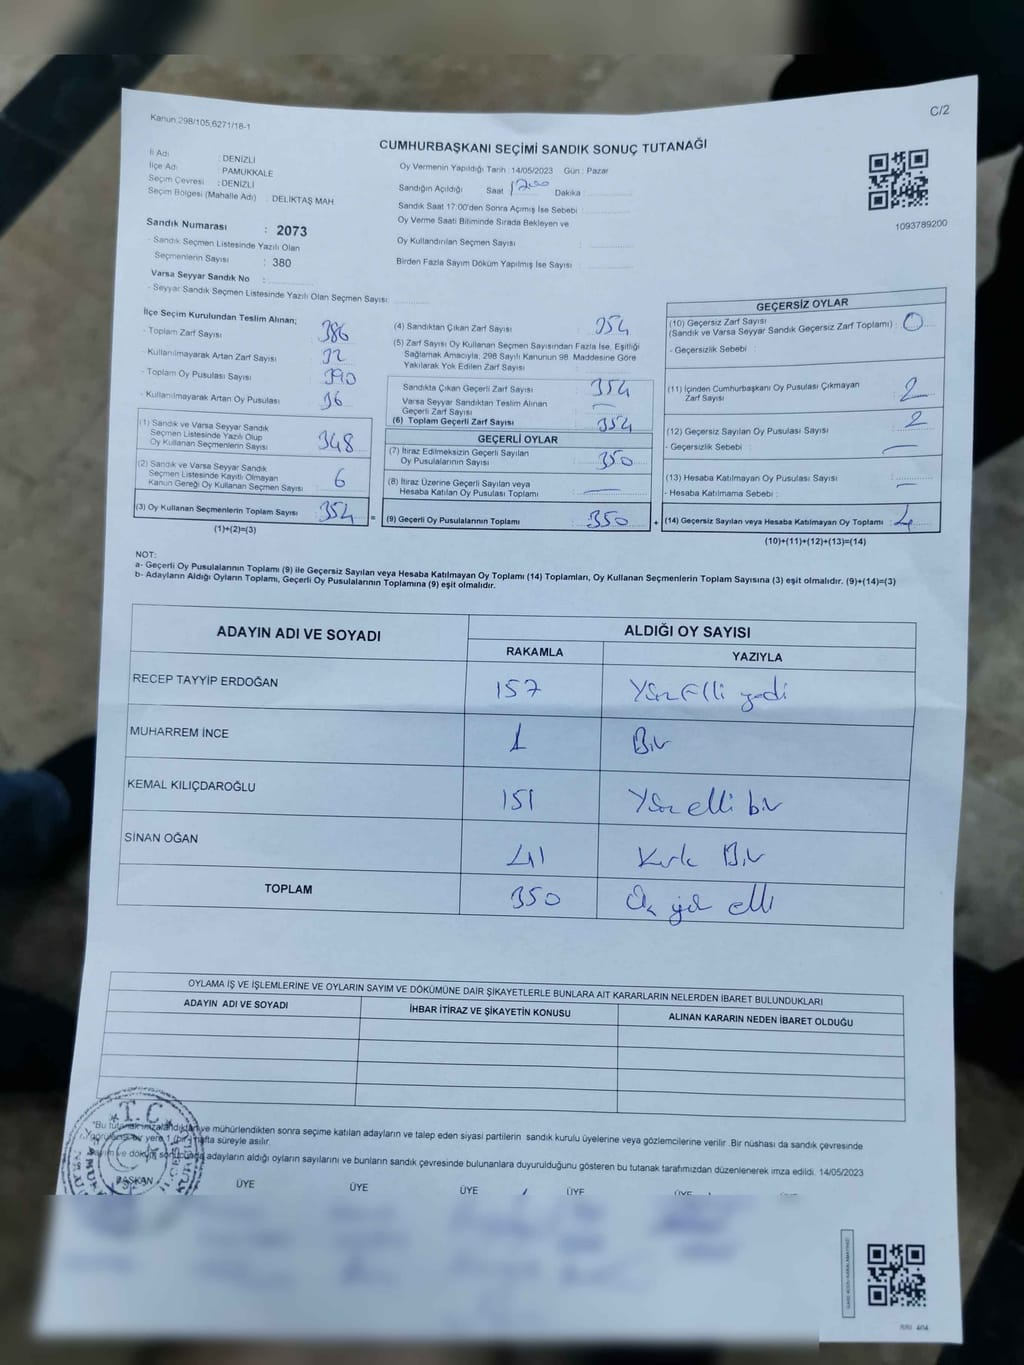 C/2
Kanun 298/105,6271/18-1
CUMHURBAŞKANI SEÇİMİ SANDIK SONUÇ TUTANAĞI
İl Adı : DENİZLİ
İlçe Adı : PAMUKKALE
Seçim Çevresi : DENİZLİ
Seçim Bölgesi (Mahalle Adı) : DELİKTAŞ MAH
Sandık Numarası : 2073
- Sandık Seçmen Listesinde Yazılı Olan
Seçmenlerin Sayısı : 380
Varsa Seyyar Sandık No :
- Seyyar Sandık Seçmen Listesinde Yazılı Olan Seçmen Sayısı:
Oy Vermenin Yapıldığı Tarih :14/05/2023 Gün : Pazar
Sandığın Açıldığı Saat 17:00 Dakika
Sandık Saat 17:00'den Sonra Açımış İse Sebebi :
Oy Verme Saati Bitiminde Sırada Bekleyen ve
Oy Kullandırılan Seçmen Sayısı :
Birden Fazla Sayım Döküm Yapılmış İse Sayısı :
1093789200
İlçe Seçim Kurulundan Teslim Alınan;
- Toplam Zarf Sayısı : 386
- Kullanılmayarak Artan Zarf Sayısı : 32
- Toplam Oy Pusulası Sayısı : 390
- Kullanılmayarak Artan Oy Pusulası : 36
(1) Sandık ve Varsa Seyyar Sandık
Seçmen Listesinde Yazılı Olup
Oy Kullanan Seçmenlerin Sayısı : 348
(2) Sandık ve Varsa Seyyar Sandık
Seçmen Listesinde Kayıtlı Olmayan
Kanun Gereği Oy Kullanan Seçmen Sayısı : 6
(3) Oy Kullanan Seçmenlerin Toplam Sayısı : 354 =
(1)+(2)=(3)
(4) Sandıktan Çıkan Zarf Sayısı : 354
(5) Zarf Sayısı Oy Kullanan Seçmen Sayısından Fazla İse, Eşitliği
Sağlamak Amacıyla; 298 Sayılı Kanunun 98. Maddesine Göre
Yakılarak Yok Edilen Zarf Sayısı :
Sandıkta Çıkan Geçerli Zarf Sayısı : 354
Varsa Seyyar Sandıktan Teslim Alınan
Geçerli Zarf Sayısı : —
(6) Toplam Geçerli Zarf Sayısı : 354
GEÇERLİ OYLAR
(7) İtiraz Edilmeksizin Geçerli Sayılan
Oy Pusulalarının Sayısı : 350
(8) İtiraz Üzerine Geçerli Sayılan veya
Hesaba Katılan Oy Pusulası Toplamı : —
(9) Geçerli Oy Pusulalarının Toplamı : 350 +
GEÇERSİZ OYLAR
(10) Geçersiz Zarf Sayısı
(Sandık ve Varsa Seyyar Sandık Geçersiz Zarf Toplamı) : 0
- Geçersizlik Sebebi :
(11) İçinden Cumhurbaşkanı Oy Pusulası Çıkmayan
Zarf Sayısı : 2
(12) Geçersiz Sayılan Oy Pusulası Sayısı : 2
- Geçersizlik Sebebi : —
(13) Hesaba Katılmayan Oy Pusulası Sayısı : —
- Hesaba Katılmama Sebebi :
(14) Geçersiz Sayılan veya Hesaba Katılmayan Oy Toplamı : 4
(10)+(11)+(12)+(13)=(14)
NOT:
a- Geçerli Oy Pusulalarının Toplamı (9) ile Geçersiz Sayılan veya Hesaba Katılmayan Oy Toplamı (14) Toplamları, Oy Kullanan Seçmenlerin Toplam Sayısına (3) eşit olmalıdır. (9)+(14)=(3)
b- Adayların Aldığı Oyların Toplamı, Geçerli Oy Pusulalarının Toplamına (9) eşit olmalıdır.
ADAYIN ADI VE SOYADI ALDIĞI OY SAYISI
RAKAMLA YAZIYLA
RECEP TAYYİP ERDOĞAN 157 Yüz Elli yedi
MUHARREM İNCE 1 Bir
KEMAL KILIÇDAROĞLU 151 Yüz elli bir
SİNAN OĞAN 41 Kırk Bir
TOPLAM 350 Üç yüz elli
OYLAMA İŞ VE İŞLEMLERİNE VE OYLARIN SAYIM VE DÖKÜMÜNE DAİR ŞİKAYETLERLE BUNLARA AİT KARARLARIN NELERDEN İBARET BULUNDUKLARI
ADAYIN ADI VE SOYADI İHBAR İTİRAZ VE ŞİKAYETİN KONUSU ALINAN KARARIN NEDEN İBARET OLDUĞU
"Bu tutanak imzalandıktan ve mühürlendikten sonra seçime katılan adayların ve talep eden siyasi partilerin sandık kurulu üyelerine veya gözlemcilerine verilir. Bir nüshası da sandık çevresinde
görülen bir yere 1 (bir) hafta süreyle asılır.
adayların aldığı oyların sayılarını ve bunların sandık çevresinde bulunanlara duyurulduğunu gösteren bu tutanak tarafımızdan düzenlenerek imza edildi. 14/05/2023
BAŞKAN ÜYE ÜYE ÜYE ÜYE ÜYE
T.C.